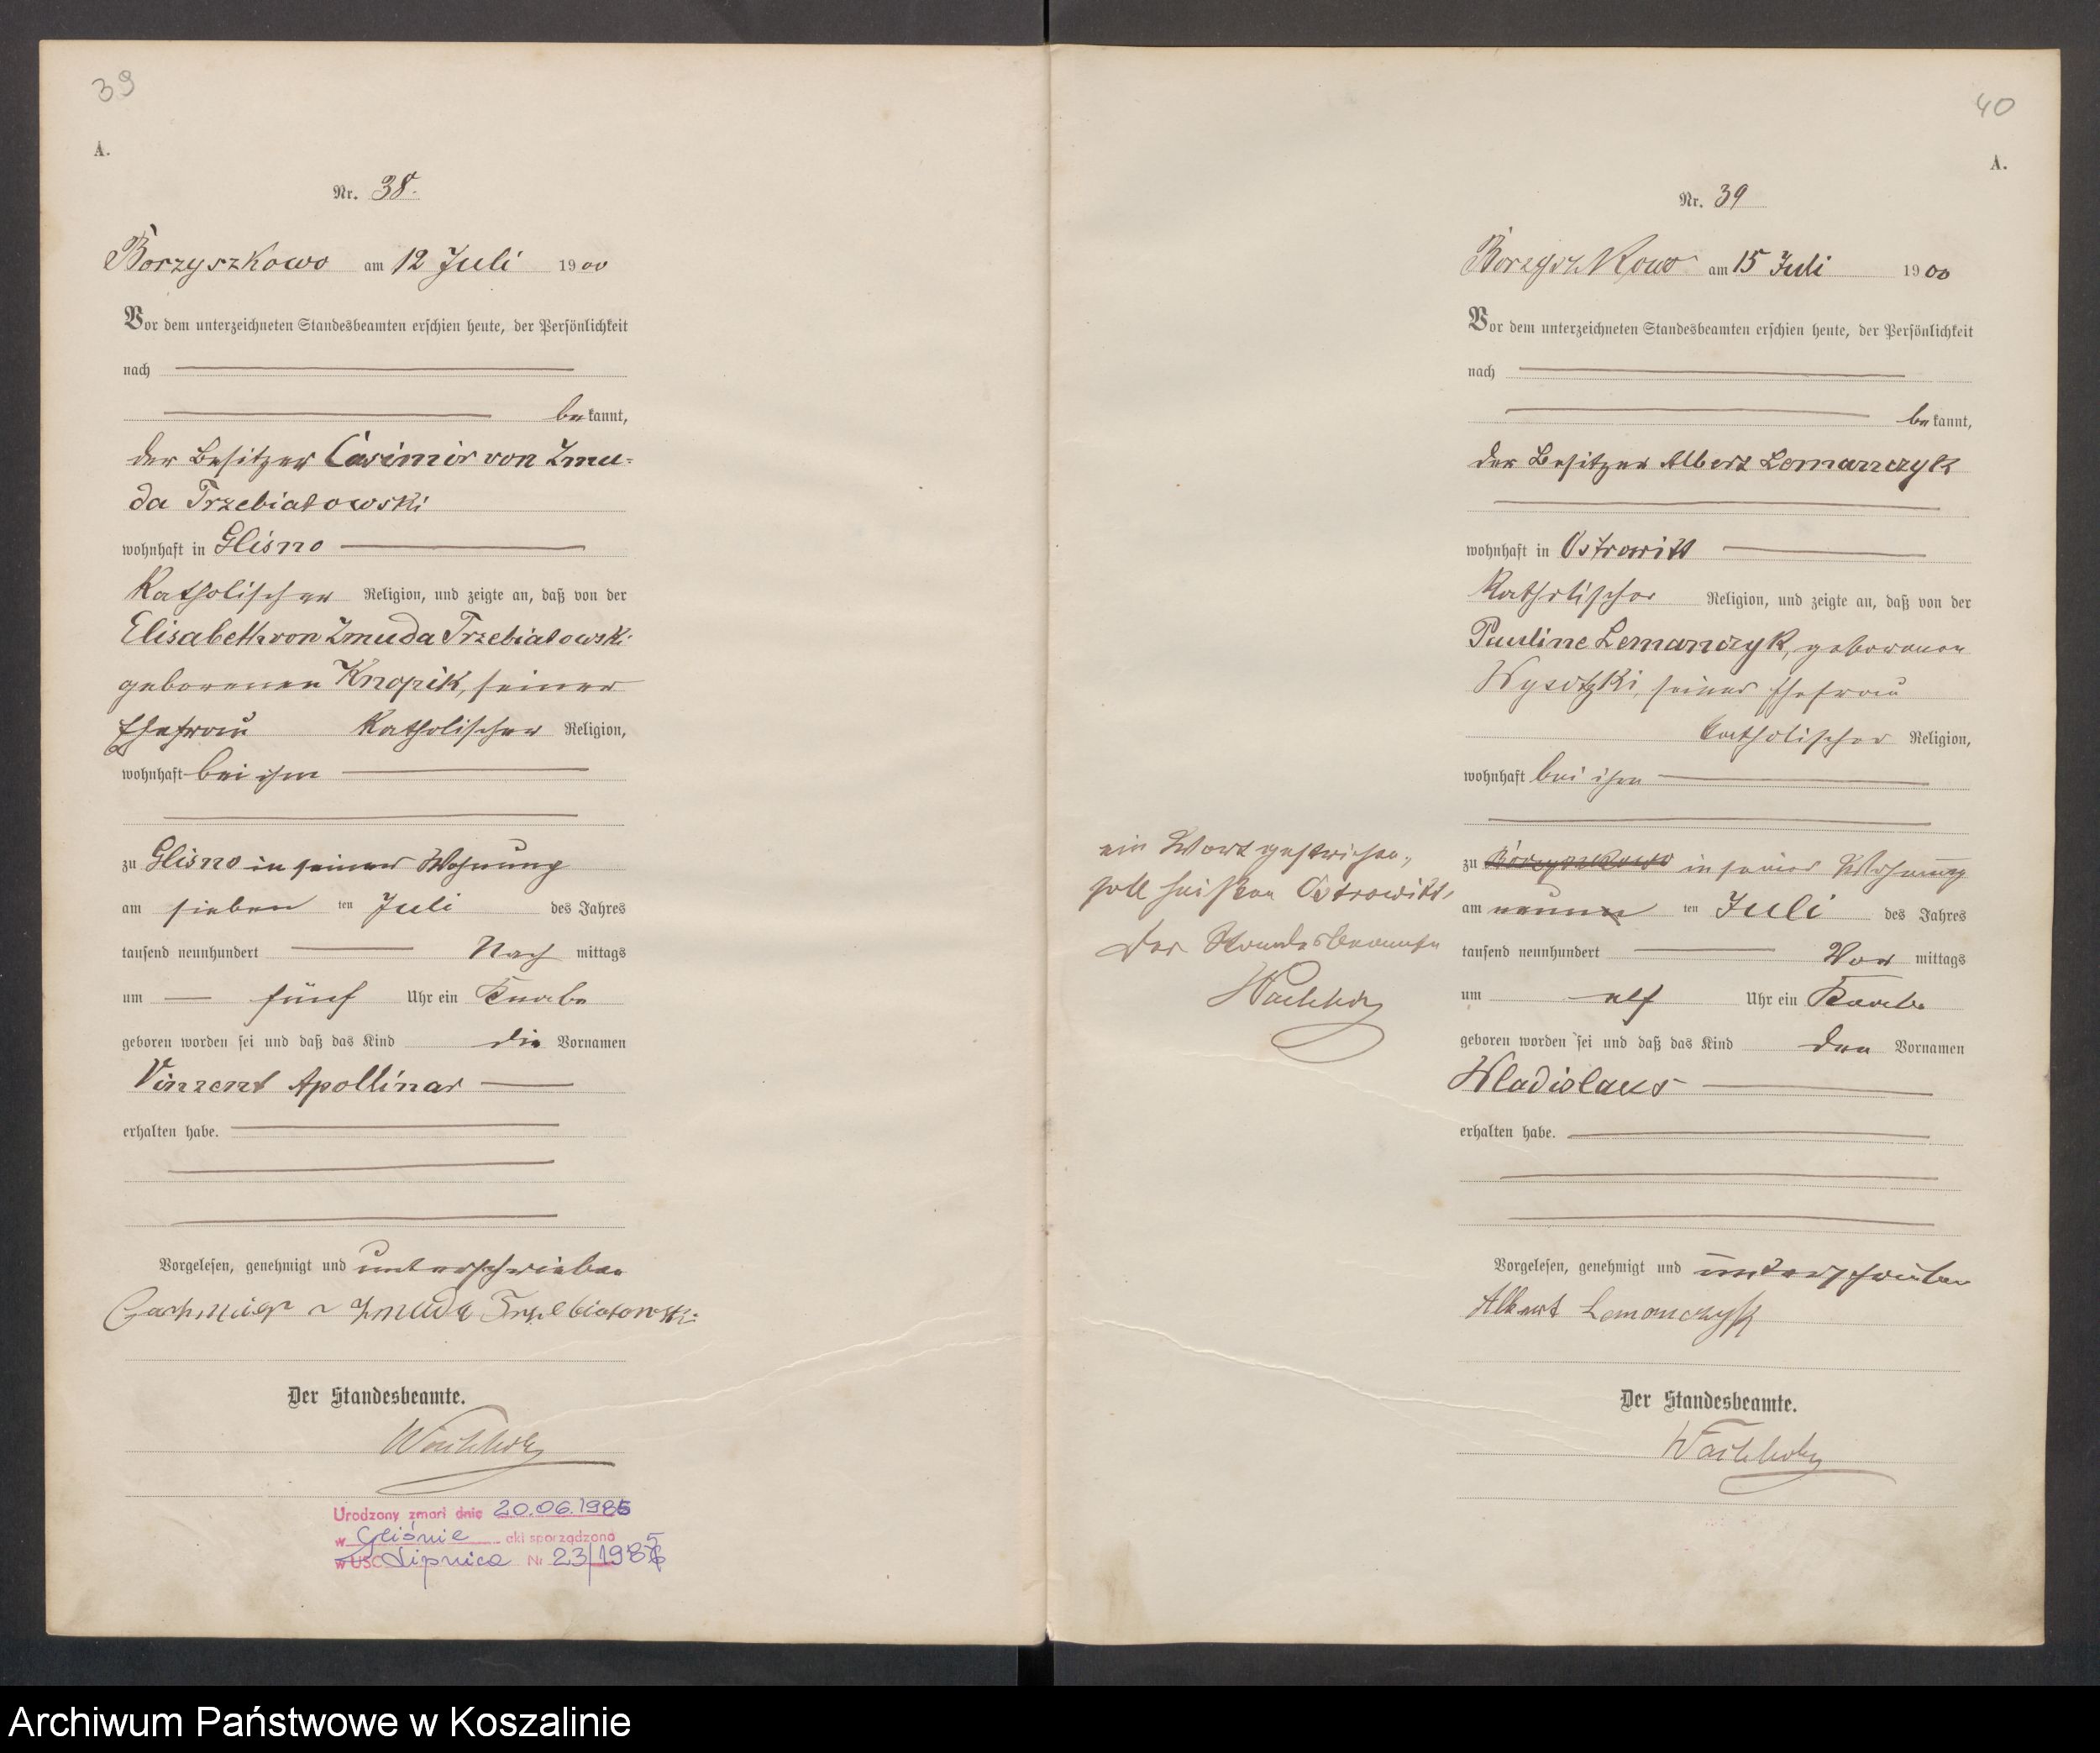 39
A.
Nr. 38.
Borzyszkowo am 12 Juli 1900
Vor dem unterzeichneten Standesbeamten erschien heute, der Persönlichkeit
nach
bekannt,
der Besitzer Casimir von Zmu-
da Trzebiatowski
wohnhaft in Glisno
Katholischer Religion, und zeigte an, daß von der
Elisabeth von Zmuda Trzebiatowski
geborenen Knopik, seiner
Ehefrau Katholischer Religion,
wohnhaft bei ihm
zu Glisno in seiner Wohnung
am sieben ten Juli des Jahres
tausend neunhundert Nach mittags
um fünf Uhr ein Knabe
geboren worden sei und daß das Kind die Vornamen
Vinzent Apollinar
erhalten habe.
Vorgelesen, genehmigt und unterschrieben
Zmuda Trzebiatowski
Der Standesbeamte.
Urodzony zmarł dnie 20.06.1985
w Gliśnie akt sporządzono
w USC Lipnica Nr 23/1985
40
A.
Nr. 39
Borzyszkowo am 15 Juli 1900
Vor dem unterzeichneten Standesbeamten erschien heute, der Persönlichkeit
nach
bekannt,
der Besitzer Albert Lemanczyk
wohnhaft in Ostrowitt
Katholischer Religion, und zeigte an, daß von der
Pauline Lemanczyk, geborenen
Wysotzki, seiner Ehefrau
katholischer Religion,
wohnhaft bei ihm
zu Borzyszkowo in seiner Wohnung
am neun ten Juli des Jahres
tausend neunhundert Vor mittags
um elf Uhr ein Knabe
geboren worden sei und daß das Kind den Vornamen
Wladislaus
erhalten habe.
Vorgelesen, genehmigt und unterschrieben
Albert Lemanczyk
Der Standesbeamte.
ein Wort gestrichen,
soll heißen Ostrowitt,
Der Standesbeamte
Archiwum Państwowe w Koszalinie